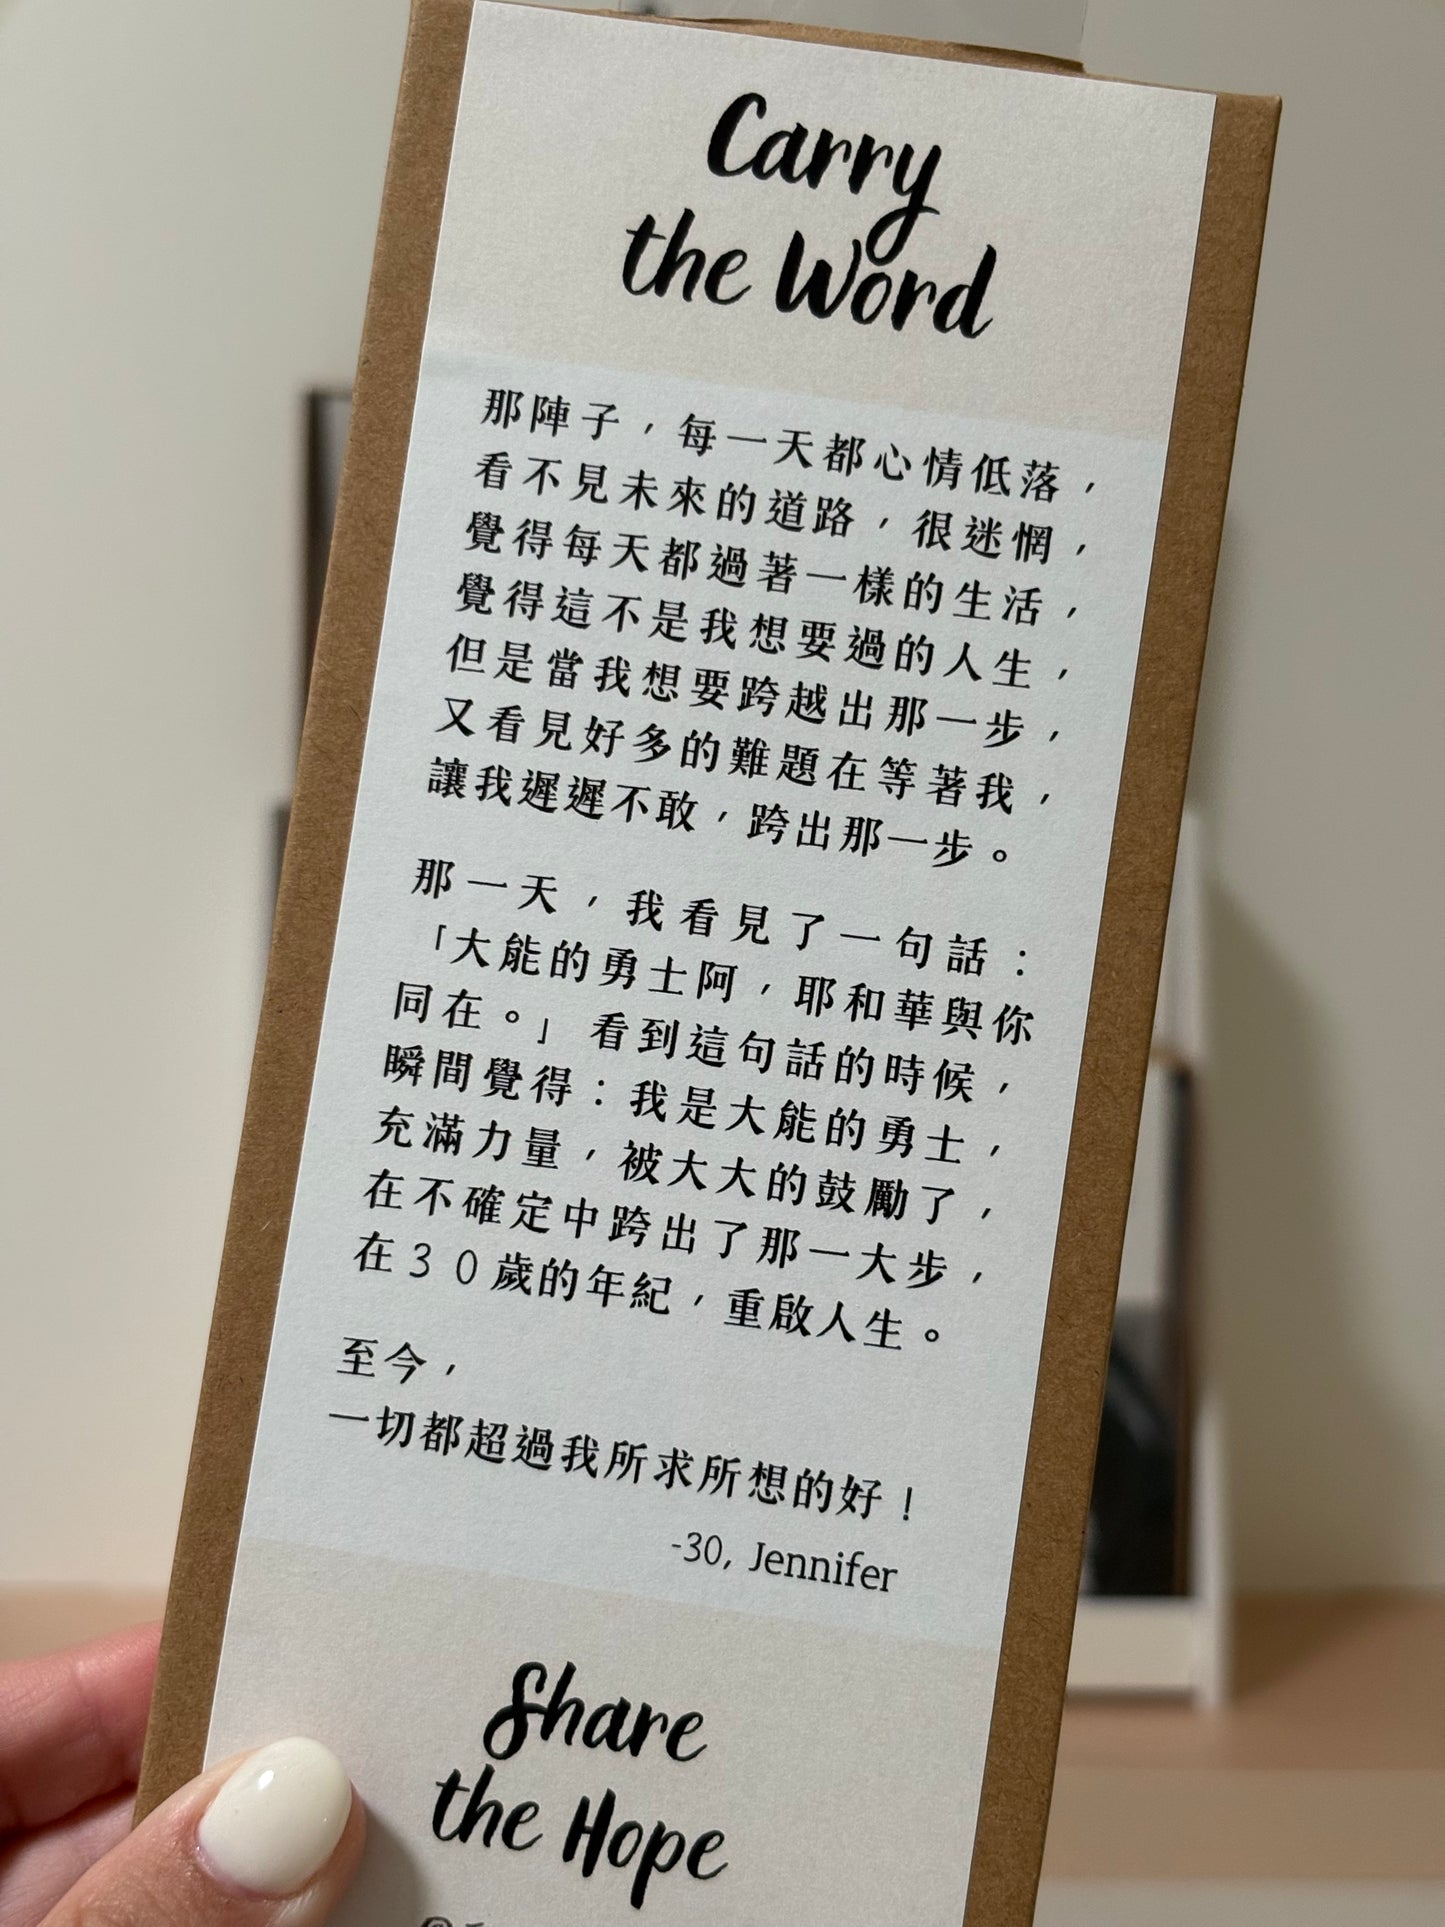 Carry
the Word
那陣子，每一天都心情低落，
看不見未來的道路，很迷惘，
覺得每天都過著一樣的生活，
覺得這不是我想要過的人生，
但是當我想要跨越出那一步，
又看見好多的難題在等著我，
讓我遲遲不敢，跨出那一步。
那一天，我看見了一句話：
「大能的勇士阿，耶和華與你
同在。」看到這句話的時候，
瞬間覺得：我是大能的勇士，
充滿力量，被大大的鼓勵了，
在不確定中跨出了那一大步，
在30歲的年紀，重啟人生。
至今，
一切都超過我所求所想的好！
-30, Jennifer
Share
the Hope